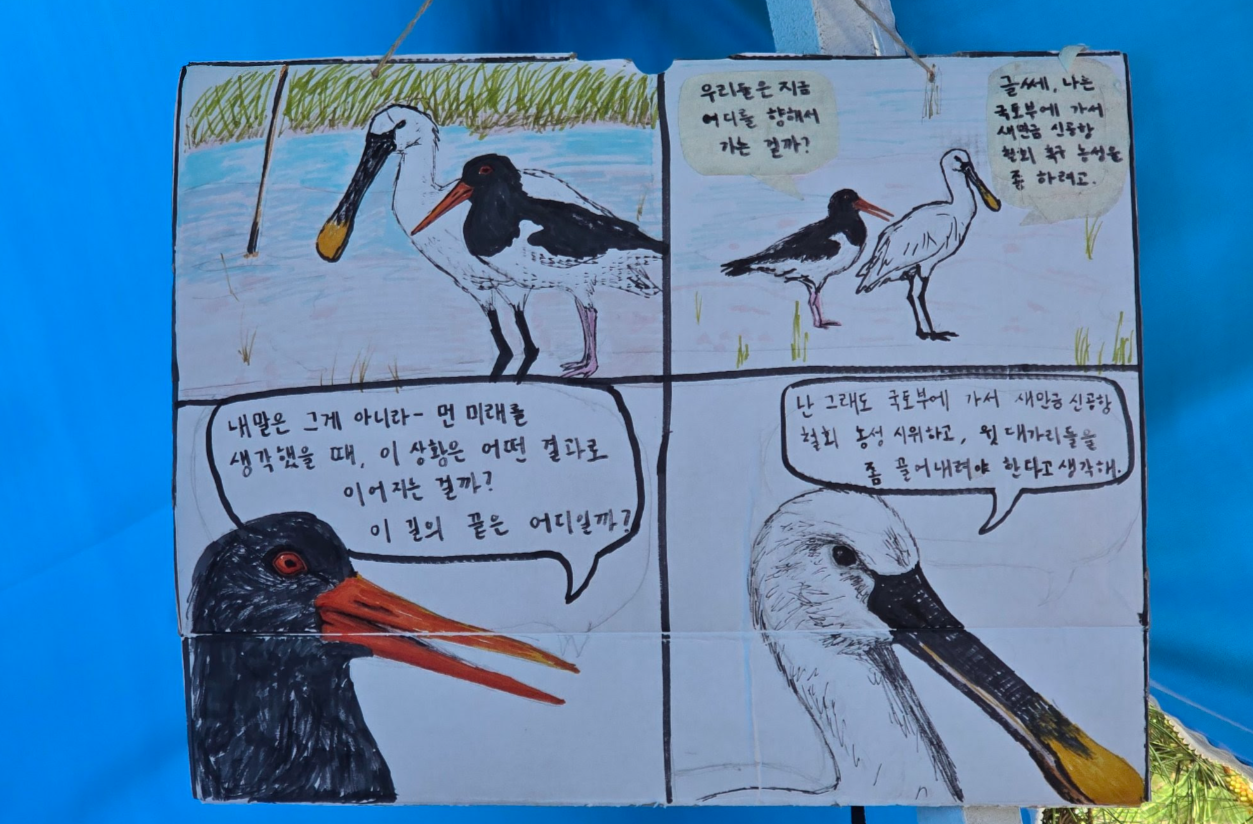 우리들은 지금
어디를 향해서
가는 걸까?
글쎄, 나는
국토부에 가서
새만금 신공항
철회 촉구 농성을
좀 하려고.
내말은 그게 아니라- 먼 미래를
생각했을 때, 이 상황은 어떤 결과로
이어지는 걸까?
이 길의 끝은 어디일까?
난 그래도 국토부에 가서 새만금신공항
철회 농성 시위하고, 윗 대가리들을
좀 끌어내려야 한다고 생각해.